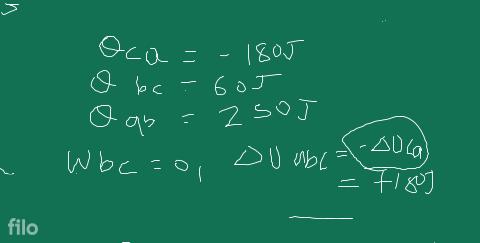 J
Qca = -180J
Q bc = 60J
Q ab = 250J
Wbc = 0, ΔU abc = -ΔUca
= +180J
filo